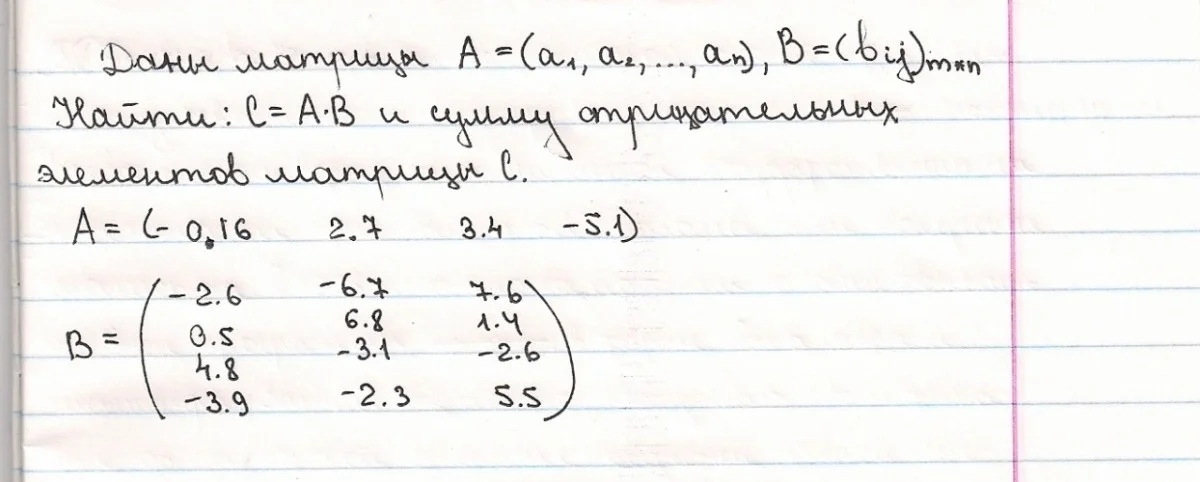 Даны матрицы A = (a₁, a₂, ..., aₙ), B = (bᵢⱼ)ₘ*ₙ
Найти: C = A·B и сумму отрицательных
элементов матрицы C.
A = (- 0.16 2.7 3.4 -5.1)
B = ( -2.6 -6.7 7.6
0.5 6.8 1.4
4.8 -3.1 -2.6
-3.9 -2.3 5.5 )